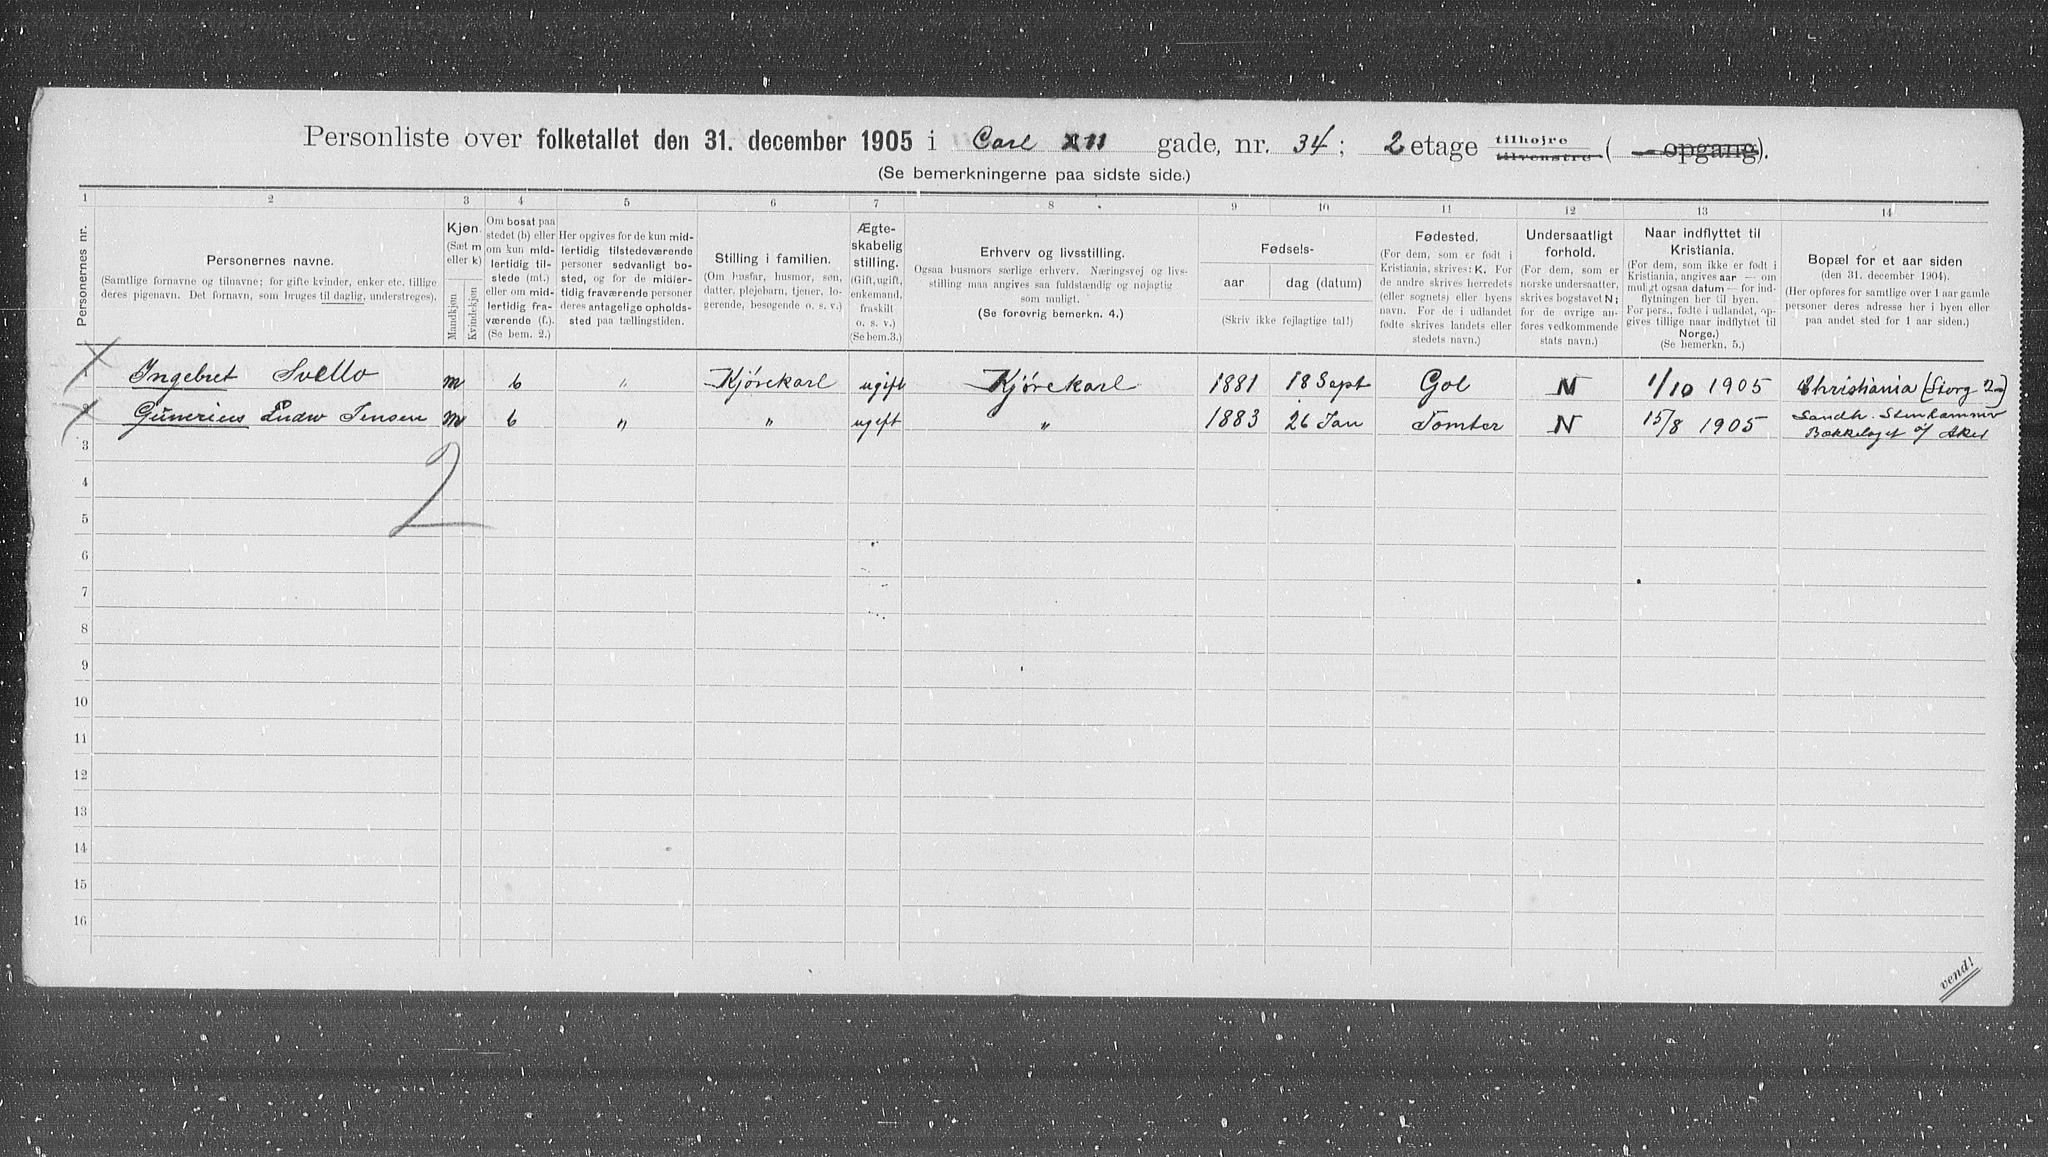 Personliste over folketallet den 31. december 1905 i Carl XII gade, nr. 34; 2 etage tilhøjre tilvenstre ( opgang).
(Se bemerkningerne paa sidste side.)
1 2 3 4 5 6 7 8 9 10 11 12 13 14
Personernes nr.
Personernes navne.
(Samtlige fornavne og tilnavne; for gifte kvinder, enker etc. tillige
deres pigenavn. Det fornavn, som bruges til daglig, understreges).
Kjøn.
(Sæt m
eller k)
Mandkjøn
Kvindekjøn
Om bosat paa
stedet (b) eller
om kun midlertidig tilstede (mt.)
eller om midlertidig fraværende (f.).
(Se bem. 2.)
Her opgives for de kun midlertidig tilstedeværende
personer sedvanligt bosted, og for de midlertidig fraværende personer
deres antagelige opholdssted paa tællingstiden.
Stilling i familien.
(Om husfar, husmor, søn,
datter, plejebarn, tjener, logerende, besøgende o. s. v.)
Ægteskabelig
stilling.
(Gift, ugift,
enkemand,
fraskilt
o. s. v.)
(Se bem.3.)
Erhverv og livsstilling.
Ogsaa husmors særlige erhverv. Næringsvej og livsstilling maa angives saa fuldstændig og nøjagtig
som muligt.
(Se forøvrig bemerkn. 4.)
Fødsels-
aar dag (datum)
(Skriv ikke fejlagtige tal!)
Fødested.
(For dem, som er født i
Kristiania, skrives: K. For
de andre skrives herredets
(eller sognets) eller byens
navn. For de i udlandet
fødte skrives landets eller
stedets navn.)
Undersaatligt
forhold.
(For dem, som er
norske undersaatter,
skrives bogstavet N;
for de øvrige anføres vedkommende
stats navn.)
Naar indflyttet til
Kristiania.
(For dem, som ikke er født i
Kristiania, angives aar — om
muligt ogsaa datum — for indflytningen her til byen.
For pers., fødte i udlandet, opgives tillige naar indflyttet til
Norge.)
(Se bemerkn. 5.)
Bopæl for et aar siden
(den 31. december 1904).
(Her opføres for samtlige over 1 aar gamle
personer deres adresse her i byen eller
paa andet sted for 1 aar siden.)
1 Ingebret Svello m b " Kjørekarl ugift Kjørekarl 1881 18 Sept Gol N 1/10 1905 Christiania (Storg
2 Gunerius Ludv Jensen m b " " ugift " 1883 26 Jan Tomter N 15/8 1905 Sandh.
Bækkelaget i/ Aker
2
3
4
5
6
7
8
9
10
11
12
13
14
15
16
vend!